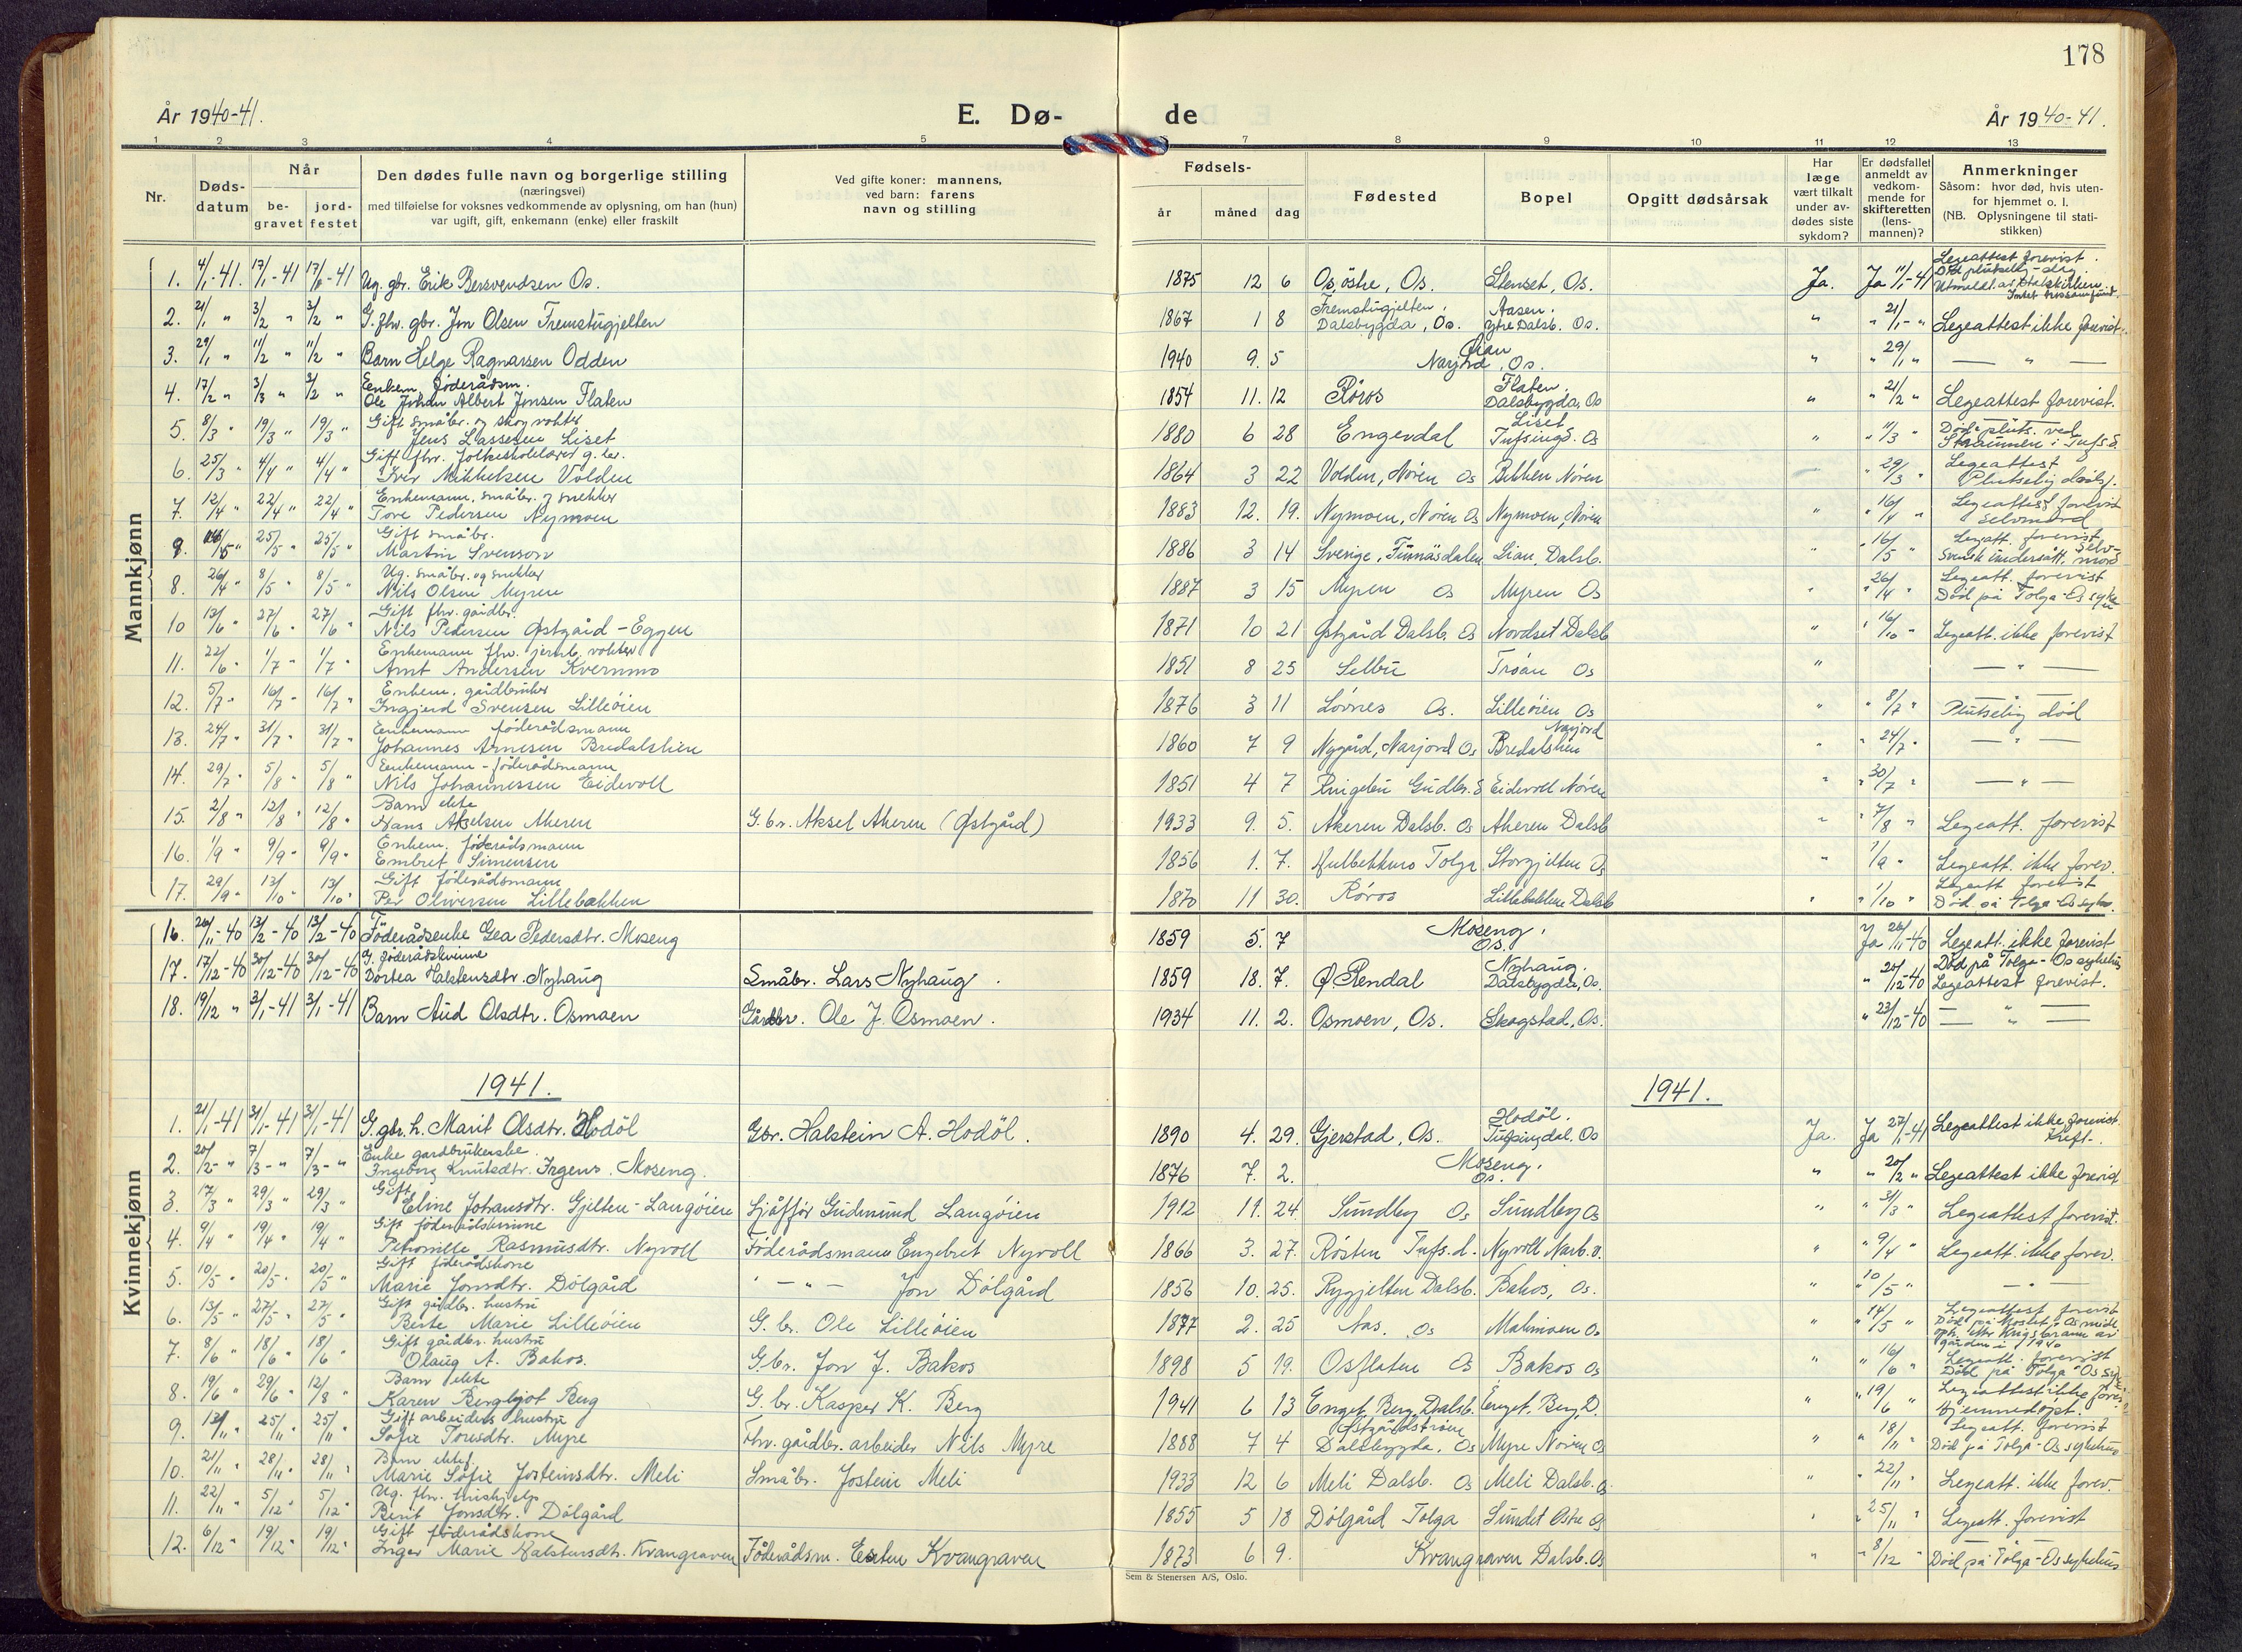 178
År 1940-41.
E. Dø-
de
År 1940-41.
1 2 3 4 5 7 8 9 10 11 12 13
Nr.
Døds-
datum
Når
be-
gravet
jord-
festet
Den dødes fulle navn og borgerlige stilling
(næringsvei)
med tilføielse for voksnes vedkommende av oplysning, om han (hun)
var ugift, gift, enkemann (enke) eller fraskilt
Ved gifte koner: mannens,
ved barn: farens
navn og stilling
Fødsels-
år måned dag
Fødested
Bopel
Opgitt dødsårsak
Har
læge
vært tilkalt
under av-
dødes siste
sykdom?
Er dødsfallet
anmeldt av
vedkom-
mende for
skifteretten
(lens-
mannen)?
Anmerkninger
Såsom: hvor død, hvis uten-
for hjemmet o. l.
(NB. Oplysningene til stati-
stikken)
Mannkjønn
1. 4/1-41. 17/1-41 17/1-41 Ug. gbr. Erik Bersvendsen Os. 1875 12 6 Os østre, Os. Stenset, Os. Ja. Ja 11/1-41 Legeattest forevist.
2. 21/1 " 3/2 " 3/2 " G. fhv. gbr. Jon Olsen Fremstugjelten 1867 1 8 Fremstugjelten, Dalsbygda, Os. Aasen, ytre Dalsb. Os. " " 21/1-" Legeattest ikke forevist.
3. 29/1 " 11/2 " 11/2 " Barn Helge Ragnarsen Odden 1940 9. 5 Narjord, Os. " " 29/1 " — " —
4. 17/2 " 3/3 " 3/2 " Enkem. föderådsm. Ole Johan Albert Jensen Flaten 1854 11. 12 Röros Flaten, Dalsbygda, Os " " 21/2 " Legeattest forevist.
5. 8/3 " 19/3 " 19/3 " Gift småbr. og skogvokter Jens Lassesen Liset 1880 6 28 Engerdal Liset Tufsingd. Os " " 11/3 " Död pluts. ved Straumen i Tufs.d.
6. 25/3 " 4/4 " 4/4 " Gift fhv. folkeskolelærer g.br. Iver Mikkelsen Volden 1864 3 22 Volden, Nören Os Bekken Nören " 29/3 " Legeattest Plutselig dödsf.
7. 12/4 " 22/4 " 22/4 " Enkemann, småbr. og snekker Tore Pedersen Nymoen 1883 12. 19. Nymoen, Nören Os Nymoen, Nören " " 16/4 " Legeattest forevist selvmord
9. 14/5 " 25/5 " 25/5 " Gift småbr. Martin Svenson 1886 3 14 Sverige, Funnäsdalen Lian, Dalsb. " 16/5 " Legeatt. forevist. Svensk undersått, selvmord
8. 26/4 " 8/5 " 8/5 " Ug. småbr. og snekker Nils Olsen Myren 1887 3 15 Myren Os Myren Os " " 26/4 " Legeatt. forevist Död på Tolga-Os syke
10 13/6 " 27/6 " 27/6 " Gift fhv. gårdbr. Nils Pedersen Östgård-Eggen 1871 10 21 Östgård Dalsb. Os Nordset Dalsb " " 16/10 " Legeatt. ikke forevist
11. 22/6 " 1/7 " 1/7 " Enkemann fhv. jernb. vokter Arnt Andersen Kvernmo 1851 8 25 Selbu Tröan Os " — " —
12. 5/7 " 16/7 " 16/7 " Enkem. gårdbruker Ingjerd Svensen Lilleöien 1876 3 11 Lövnes Os. Lilleöien Os " " 8/7 " Plutselig död
13. 24/7 " 31/7 " 31/7 " Enkemann föderådsmann Johannes Arnesen Bredalslien 1860 7 9 Nygård, Narjord Os Bredalslien Narjord " " 24/7 " — " —
14. 29/7 " 5/8 " 5/8 " Enkemann - föderådsmann Nils Johannessen Eidevoll 1851 4 7 Ringebu Gudbr.d Eidevoll Nören " " 30/7 " — " —
15. 2/8 " 12/8 " 12/8 " Barn ekte Hans Akselsen Akeren G.br. Aksel Akeren (Östgård) 1933 9. 5. Akeren Dalsb. Os Akeren Dalsb " " 7/8 " Legeatt. forevist
16. 1/9 " 9/9 " 9/9 " Enkem. föderådsmann Embret Simensen 1856 1. 7. Hulbekkmo Tolga Storgjelten Os " " 1/9 " Legeatt. ikke forev.
17. 29/9 " 13/10 " 13/10 " Gift föderådsmann Per Oliversen Lillebakken 1870 11 30. Röros Lillebakken Dalsb " " 1/10 " Legeatt forevist Död på Tolga-Os sykeh.
Kvinnekjønn
16. 26/11-40 13/2-40 13/2-40 Föderådsenke Gea Pedersdtr. Moseng 1859 5. 7 Moseng, Os. Ja 26/11-40 Legeatt. ikke forevist
17. 17/12-40 30/12-40 30/12-40 G. föderådskvinne Dortea Halstensdtr. Nyhaug Småbr. Lars Nyhaug. 1859 18. 7. Ø. Rendal Nyhaug, Dalsbygda, Os. " 20/12-40 Död på Tolga-Os sykehus Legeattest forevist.
18. 19/12 " 3/1-41 3/1-41 Barn Aud Olsdtr. Osmoen Gårdbr. Ole J. Osmoen. 1934 11. 2. Osmoen, Os. Skogstad, Os. " 23/12-40 — " —
1941. 1941.
1. 21/1-41 31/1-41 31/1-41 G. gbr. h. Marit Olsdtr. Hodöl Gbr. Halstein A. Hodöl. 1890 4. 29. Gjerstad, Os. Hodöl, Tufsingdal. Os Ja. Ja 27/1-41 Legeattest ikke forevist. Kreft.
2. 20/2- " 7/3- " 7/3- " Enke gardbrukerske. Ingeborg Knutsdtr. Irgens. Moseng. 1876 7. 2. Moseng, Os. " " 20/2 " Legeattest ikke forevist
3. 17/3 " 29/3 " 29/3 " Gift Eline Johansdtr. Gjelten-Langöien Sjåfför Gudmund Langöien 1912 11. 24. Sundby Os Sundby Os " " 31/3 " Legeattest forevist.
4. 9/4 " 19/4 " 19/4 " Gift föderådskvinne Petronille Rasmusdtr. Nyvoll Föderådsmann Engebret Nyvoll 1866 3. 27. Rösten Tufs.d. Nyvoll Narb. o. " " 9/4 " Legeatt. ikke forev.
5. 10/5 " 20/5 " 20/5 " Gift föderådskone Marie Jonsdtr. Dölgård " — " — Jon Dölgård 1856 10. 25. Rygjelten Dalsb. Bakos, Os. " " 10/5 " — " —
6. 13/5 " 27/5 " 27/5 " Gift gårdbr. hustru Berte Marie Lilleöien G. br. Ole Lilleöien 1877 2. 25 Nas. Os Malmoen Os " " 14/5 " Legeattest forevist
7. 8/6 " 18/6 " 18/6 " Gift gårdbr. hustru Olaug A. Bakos. G.br. Jon J. Bakos 1898 5 19. Osflaten Os Bakos Os " " 16/6 " Legeatt. forevist Död på Tolga-Os syke
8. 19/6 " 29/6 " 12/8 " Barn ekte Karen Bergljot Berg G. br. Kasper K. Berg 1941 6 13 Enget, Berg, Dalsb. Enget, Berg, D. " " 19/6 " Legeattest ikke forev. Hjemmedöpt.
9. 13/11 " 25/11 " 25/11 " Gift arbeiders hustru Sofie Toresdtr. Myre Fhv. gårdbr. arbeider Nils Myre 1888 7 4 Östgårdströen Dalsbygda, Os Myre Nören Os " " 18/11 " Legeatt. forevist Död på Tolga-Os sykehus
10. 21/11 " 28/11 " 28/11 " Barn ektef. Marie Sofie Josteinsdtr. Meli Småbr. Jostein Meli 1933 12 6 Meli Dalsb. Os Meli Dalsb. Os " " 22/11 " Legeatt. ikke forev.
11. 22/11 " 5/12 " 5/12 " Ug. fhv. hushjelp Berit Jonsdtr. Dölgård 1855 5 18 Dölgård Tolga Sundet Östre Os " " 25/11 " Legeatt. forevist
12. 6/12 " 19/12 " 19/12 " Gift föderådskone Inger Marie Halstensdtr. Kvangraven Föderådsm. Esten Kvangraven 1873 6 9. Kvangraven Dalsb. Os " " 8/12 " Död på Tolga-Os sykehus
Sem & Stenersen A/S, Oslo.